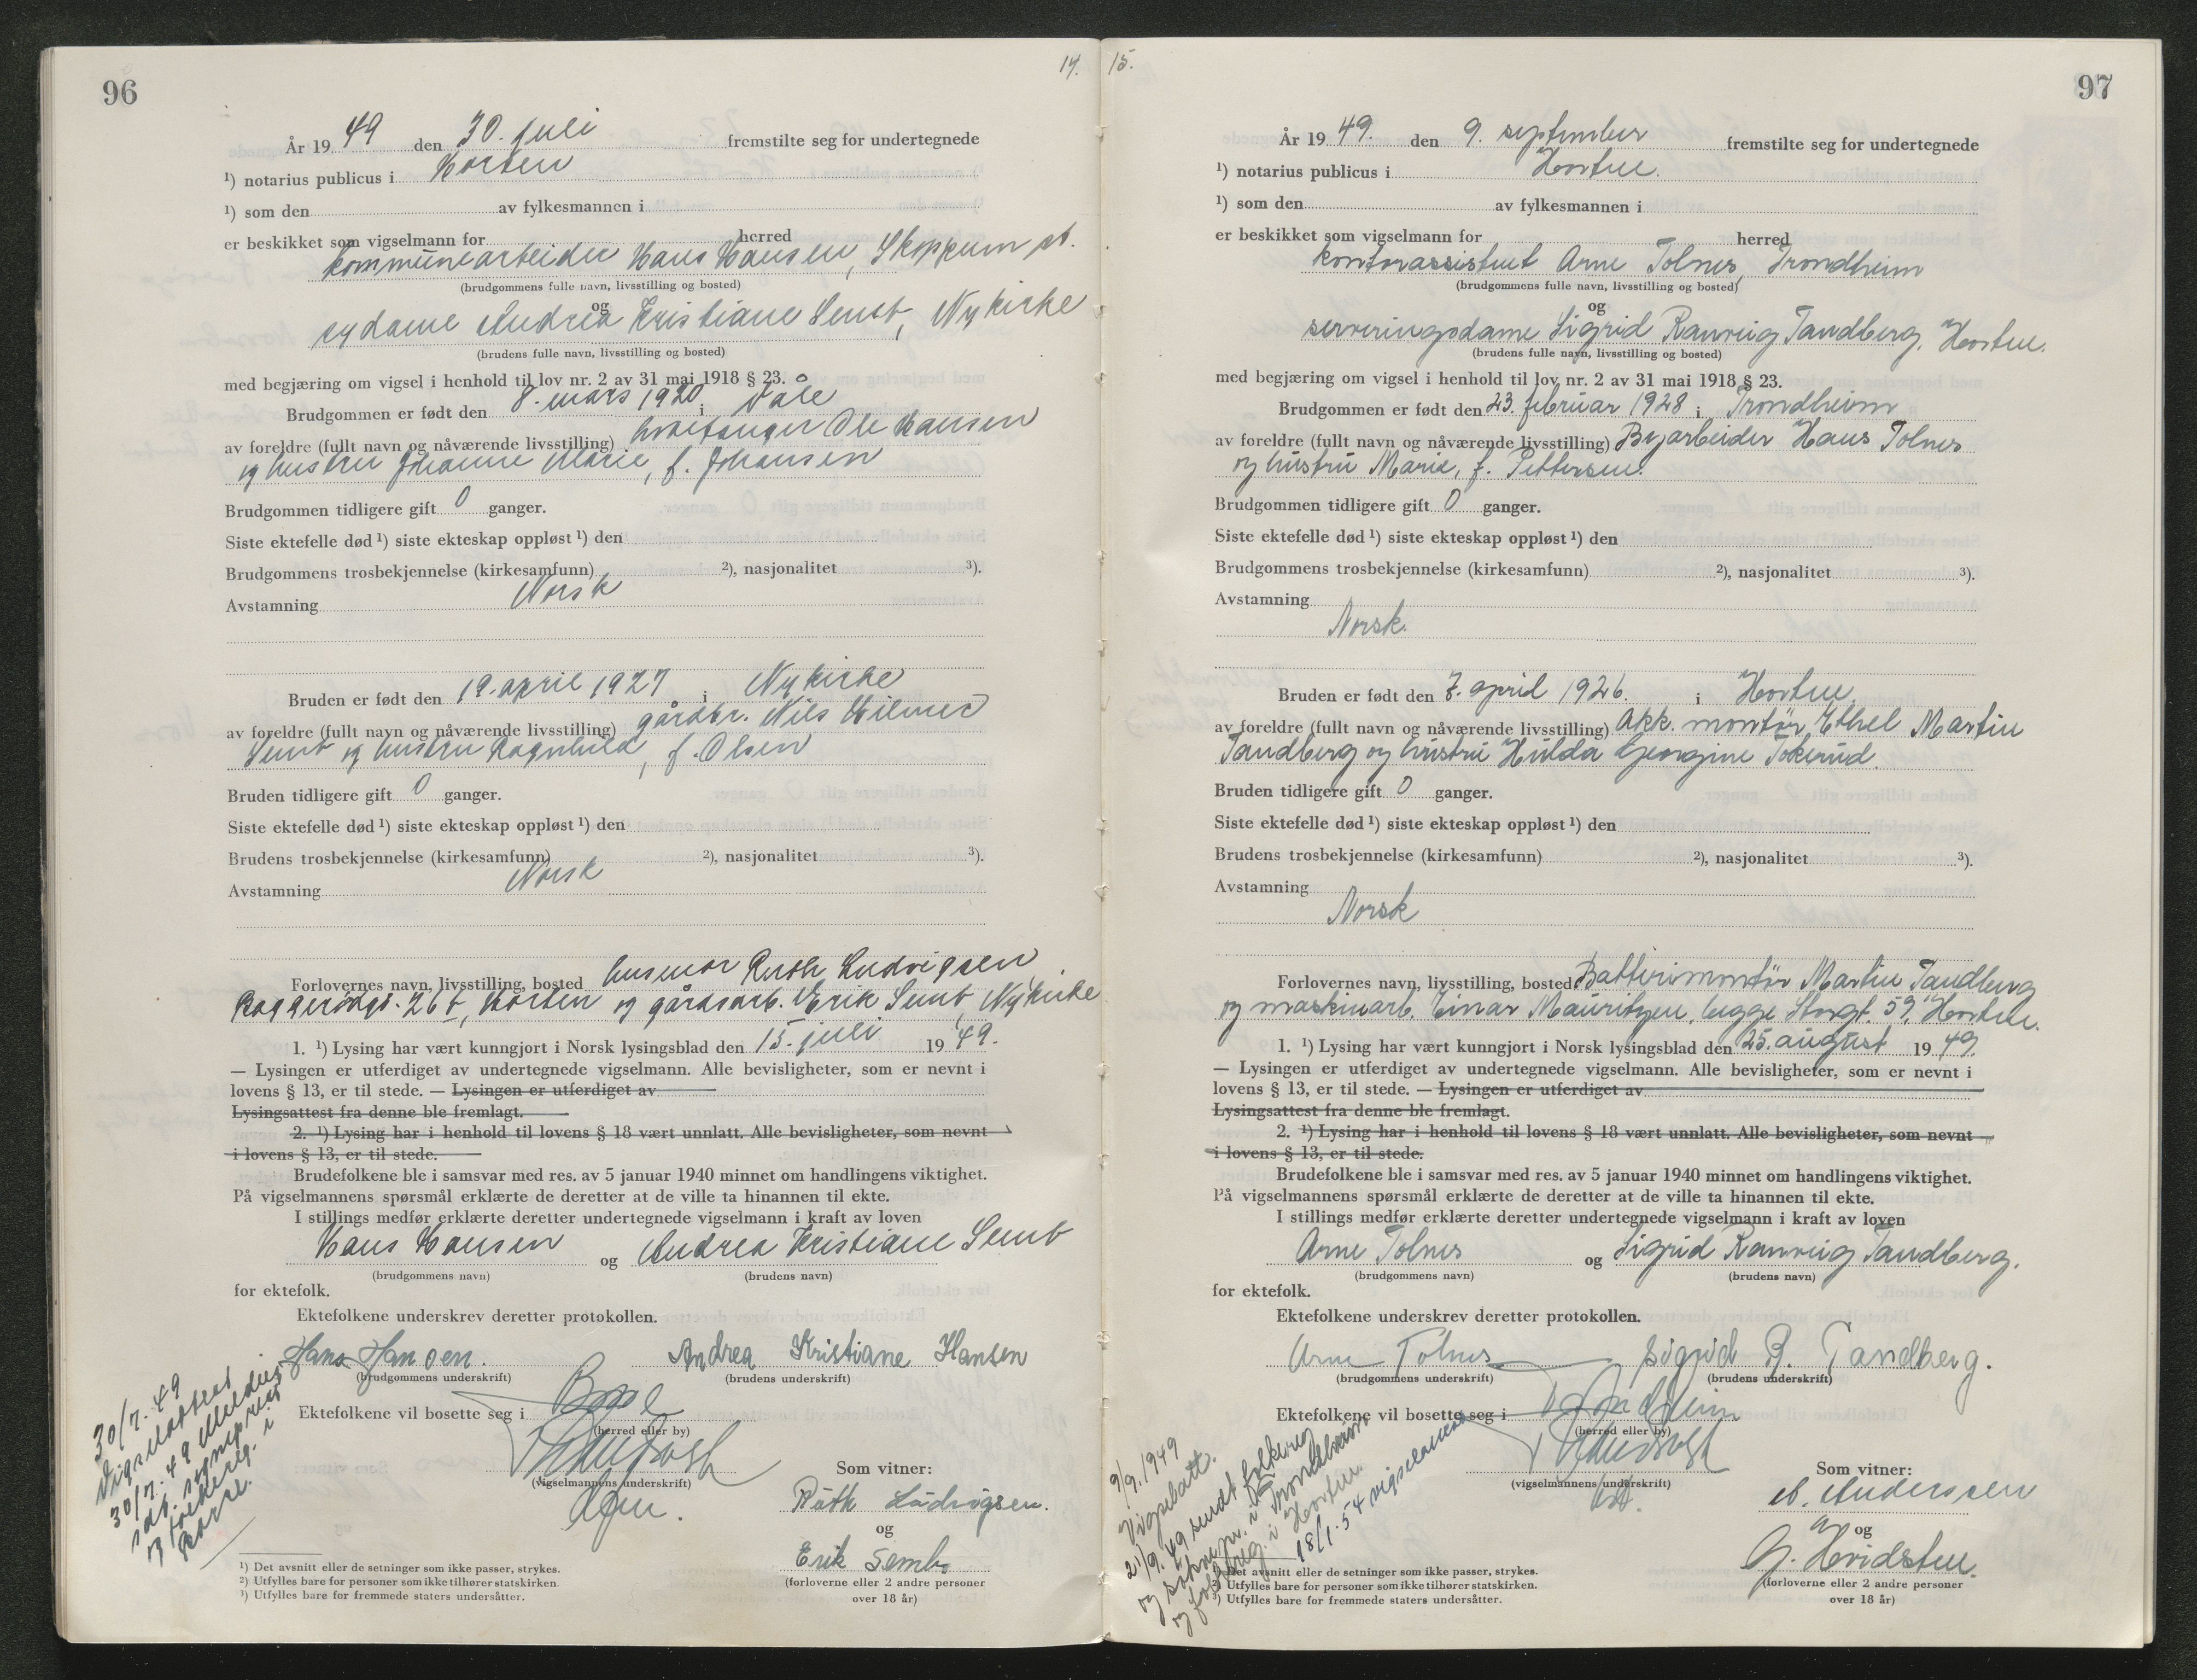 96
14.
År 1949 den 30. juli fremstilte seg for undertegnede
¹) notarius publicus i Horten
¹) som den av fylkesmannen i
er beskikket som vigselmann for herred
kommunearbeider Hans Hansen, Skoppum st.
(brudgommens fulle navn, livsstilling og bosted)
og
sydame Andrea Kristiane Semb, Nykirke
(brudens fulle navn, livsstilling og bosted)
med begjæring om vigsel i henhold til lov nr. 2 av 31 mai 1918 § 23.
Brudgommen er født den 8. mars 1920 i Våle
av foreldre (fullt navn og nåværende livsstilling) Ole Hansen
og hustru Johanne Marie, f. Johansen
Brudgommen tidligere gift 0 ganger.
Siste ektefelle død ¹) siste ekteskap oppløst ¹) den
Brudgommens trosbekjennelse (kirkesamfunn) ²), nasjonalitet ³).
Avstamning Norsk
Bruden er født den 19. april 1927 i Nykirke
av foreldre (fullt navn og nåværende livsstilling) gårdbr. Nils Hilmed
Semb og hustru Ragnhild, f. Olsen
Bruden tidligere gift 0 ganger.
Siste ektefelle død ¹) siste ekteskap oppløst ¹) den
Brudens trosbekjennelse (kirkesamfunn) ²), nasjonalitet ³).
Avstamning Norsk
Forlovernes navn, livsstilling, bosted husmor Ruth Ludvigsen
26 b, Horten og gårdsarb. Erik Semb, Nykirke
1. ¹) Lysing har vært kunngjort i Norsk lysingsblad den 15. juli 1949.
— Lysingen er utferdiget av undertegnede vigselmann. Alle bevisligheter, som er nevnt i
lovens § 13, er til stede. — Lysingen er utferdiget av
Lysingsattest fra denne ble fremlagt.
2. ¹) Lysing har i henhold til lovens § 18 vært unnlatt. Alle bevisligheter, som nevnt
i lovens § 13, er til stede.
Brudefolkene ble i samsvar med res. av 5 januar 1940 minnet om handlingens viktighet.
På vigselmannens spørsmål erklærte de deretter at de ville ta hinannen til ekte.
I stillings medfør erklærte deretter undertegnede vigselmann i kraft av loven
Hans Hansen og Andrea Kristiane Semb
(brudgommens navn) (brudens navn)
for ektefolk.
Ektefolkene underskrev deretter protokollen.
Hans Hansen. Andrea Kristiane Hansen
(brudgommens underskrift) (brudens underskrift)
Ektefolkene vil bosette seg i
(herred eller by)
(vigselmannens underskrift)
Som vitner:
Ruth Ludvigsen.
og
Erik Semb
(forloverne eller 2 andre personer
over 18 år)
30/7. 49
Vigselattest
30/7. 49 Melding
til sogneprest
og folkereg. i
Borre.
¹) Det avsnitt eller de setninger som ikke passer, strykes.
²) Utfylles bare for personer som ikke tilhører statskirken.
³) Utfylles bare for fremmede staters undersåtter.
15.
97
År 1949. den 9. september fremstilte seg for undertegnede
¹) notarius publicus i Horten.
¹) som den av fylkesmannen i
er beskikket som vigselmann for herred
kontorassistent Arne Tolnes, Trondheim
(brudgommens fulle navn, livsstilling og bosted)
og
serveringsdame Sigrid Ranveig Tandberg, Horten.
(brudens fulle navn, livsstilling og bosted)
med begjæring om vigsel i henhold til lov nr. 2 av 31 mai 1918 § 23.
Brudgommen er født den 23. februar 1928 i Trondheim
av foreldre (fullt navn og nåværende livsstilling) Byarbeider Hans Tolnes
og hustru Marie, f. Pettersen.
Brudgommen tidligere gift 0 ganger.
Siste ektefelle død ¹) siste ekteskap oppløst ¹) den
Brudgommens trosbekjennelse (kirkesamfunn) ²), nasjonalitet ³).
Avstamning
Norsk.
Bruden er født den 7. april 1926. i Horten
av foreldre (fullt navn og nåværende livsstilling) Akk. montør Ethel Martin
Tandberg og hustru Hulda Georgine Tokerud.
Bruden tidligere gift 0 ganger.
Siste ektefelle død ¹) siste ekteskap oppløst ¹) den
Brudens trosbekjennelse (kirkesamfunn) ²), nasjonalitet ³).
Avstamning
Norsk
Forlovernes navn, livsstilling, bosted Batterimontør Martin Tandberg
og maskinarb. Einar Mauritzen, begge Storgt. 59, Horten.
1. ¹) Lysing har vært kunngjort i Norsk lysingsblad den 25. august 1949.
— Lysingen er utferdiget av undertegnede vigselmann. Alle bevisligheter, som er nevnt i
lovens § 13, er til stede. — Lysingen er utferdiget av
Lysingsattest fra denne ble fremlagt.
2. ¹) Lysing har i henhold til lovens § 18 vært unnlatt. Alle bevisligheter, som nevnt
i lovens § 13, er til stede.
Brudefolkene ble i samsvar med res. av 5 januar 1940 minnet om handlingens viktighet.
På vigselmannens spørsmål erklærte de deretter at de ville ta hinannen til ekte.
I stillings medfør erklærte deretter undertegnede vigselmann i kraft av loven
Arne Tolnes og Sigrid Ranveig Tandberg.
(brudgommens navn) (brudens navn)
for ektefolk.
Ektefolkene underskrev deretter protokollen.
Arne Tolnes Sigrid R. Tandberg.
(brudgommens underskrift) (brudens underskrift)
Ektefolkene vil bosette seg i Trondheim
(herred eller by)
(vigselmannens underskrift)
Som vitner:
N. Anderssen
og
G. Hvidsten.
(forloverne eller 2 andre personer
over 18 år)
9/9. 1949
Vigselatt.
21/9. 49 sendt folkereg
og soknepr. i Trondheim
og folkereg. i Horten.
18/1. 54 vigselattest
¹) Det avsnitt eller de setninger som ikke passer, strykes.
²) Utfylles bare for personer som ikke tilhører statskirken.
³) Utfylles bare for fremmede staters undersåtter.